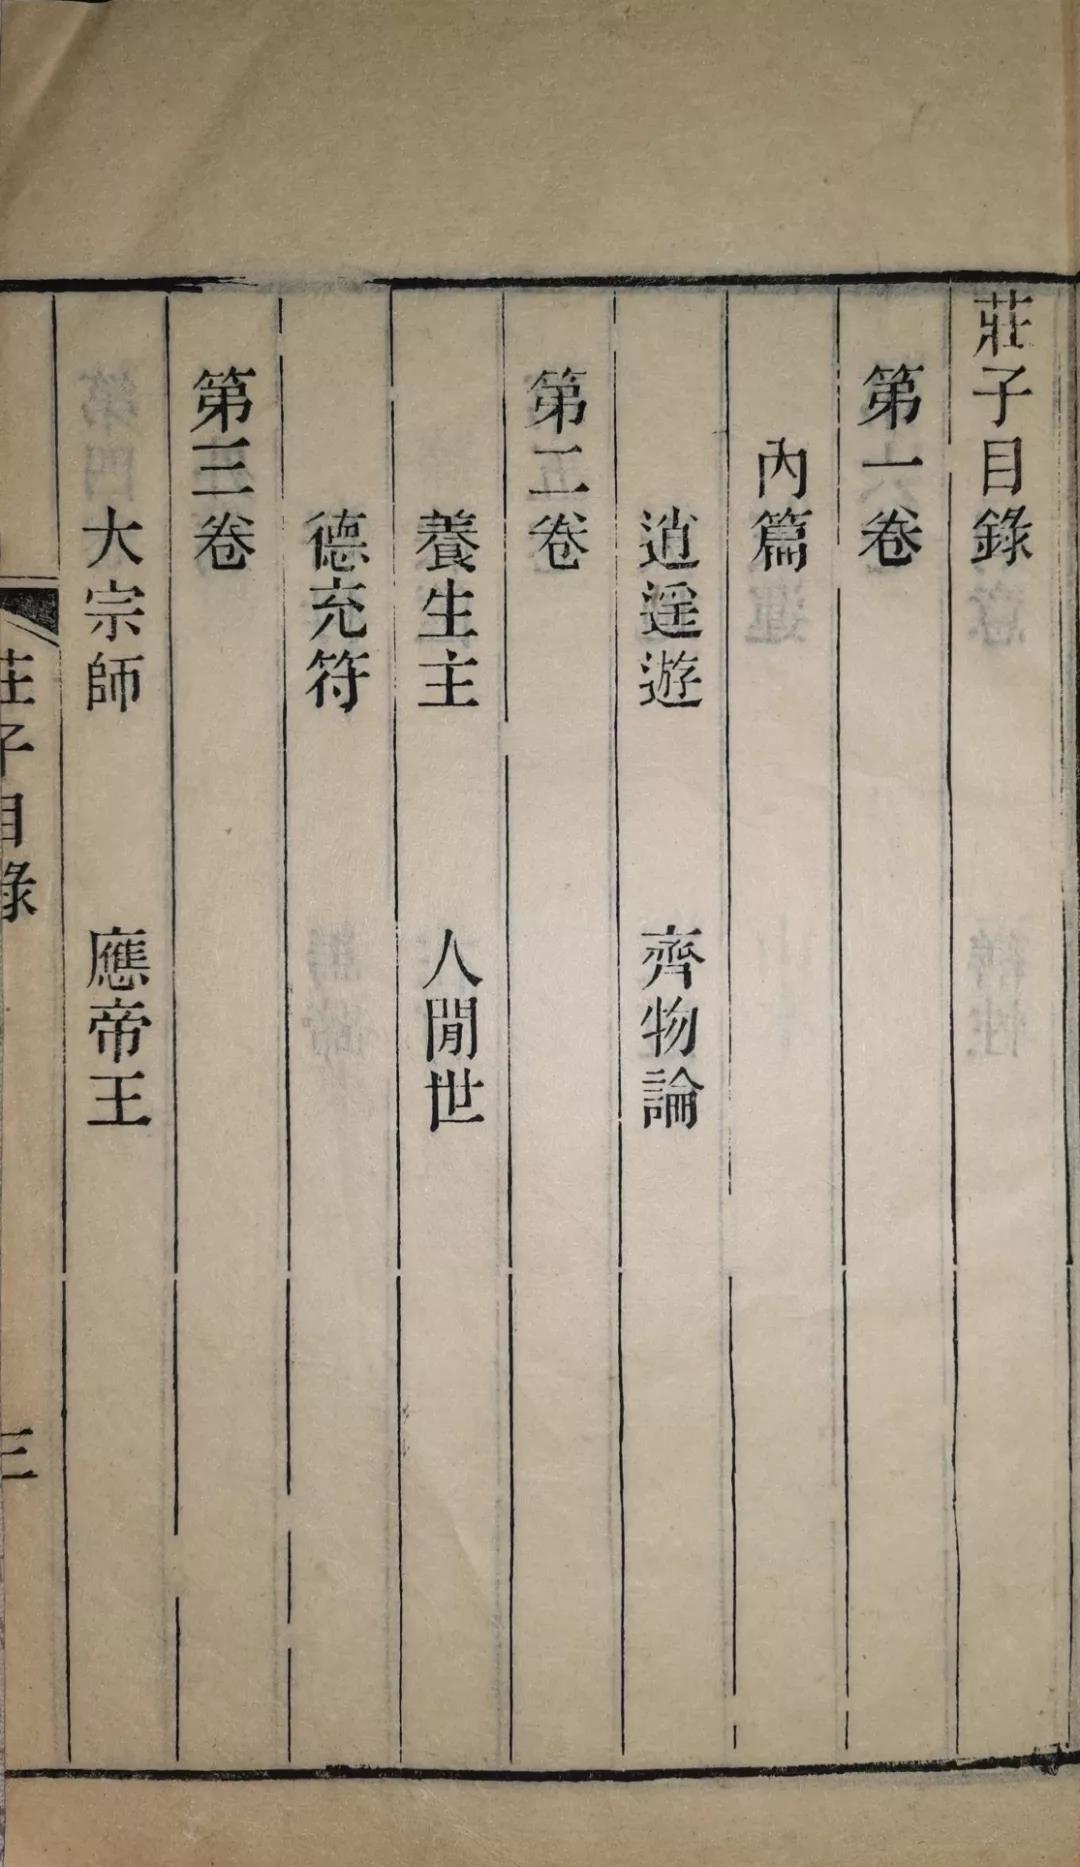 莊子目錄
第一卷
內篇
逍遥遊 齊物論
第二卷
養生主 人閒世
德充符
第三卷
大宗師 應帝王
莊子目錄 三